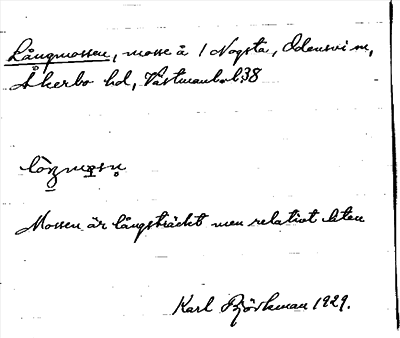 Långmossen, mosse å 1 Nogsta, Odensvi sn,
Åkerbo hd, Västmanl. 38
Mossen är långsträckt men relativt liten
Karl Björkman 1929.